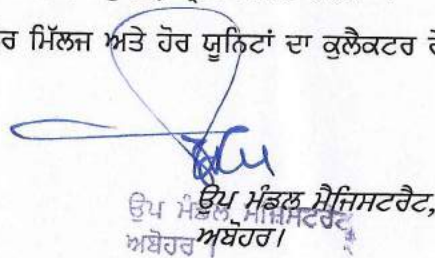 ਰ ਮਿੱਲਜ ਅਤੇ ਹੋਰ ਯੂਨਿਟਾਂ ਦਾ ਕੁਲੈਕਟਰ ਰੇ
ਉਪ ਮੰਡਲ ਮੈਜਿਸਟਰੈਟ,
ਅਬੋਹਰ।
ਉਪ ਮੰਡਲ ਮੈਜਿਸਟਰੇਟ
ਅਬੋਹਰ।